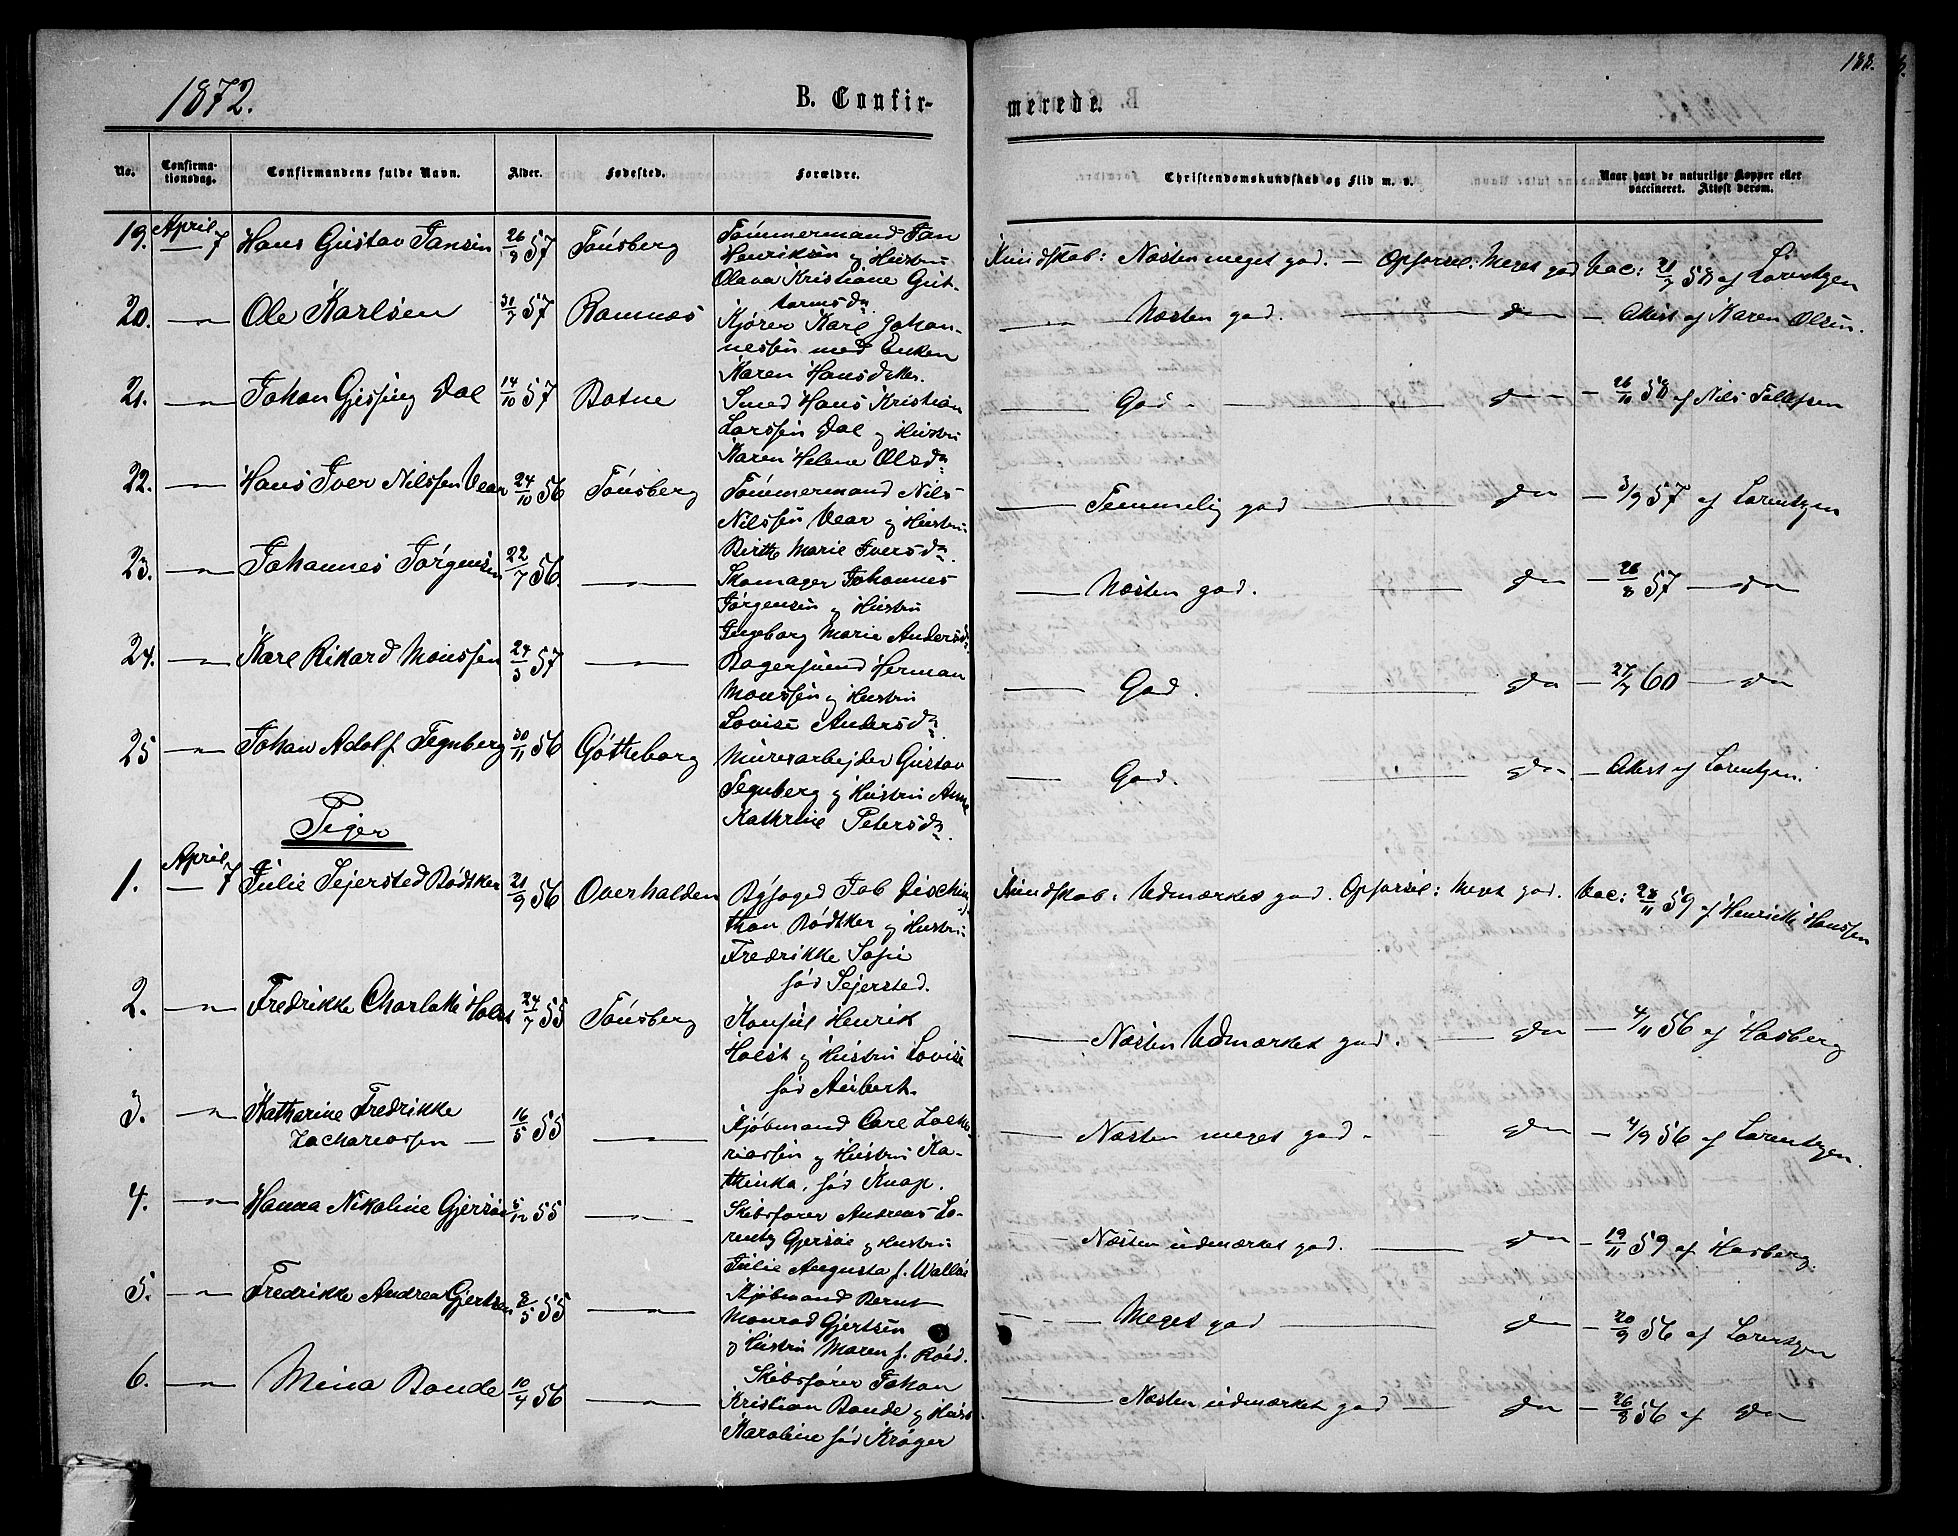 1872.
B. Confir-
merede.
188.
No.
Confirma-
tionsdag.
Confirmandens fulde Navn.
Alder.
Fødested.
Forældre.
Christendomskundskab og Flid m. v.
Naar havt de naturlige Kopper eller
vaccineret. Attest derom.
19. April 7 Hans Gustav Jansen 26/8 57 Tönsberg Tömmermand Jan
Henriksen og Hustru
Olava Kristiane Gut-
tormsdr
Kundskab: Næsten meget god. — Opførsel: Meget god Vac: 21/7 58 af Lorentzen
20. — " — Ole Karlsen 31/7 57 Ramnæs Kjører Karl Johan-
nessen med Enken
Karen Hansdtr.
— Næsten god. — do — Attest af Karen Olsen.
21. — " — Johan Gjessing Dal 14/10 57 Botne Smed Hans Kristian
Larssen Dal og Hustru
Karen Helene Olsdr
— God — do — 26/11 58 af Nils Tollefsen
22. — " — Hans Iver Nilssen Vear 24/10 56 Tönsberg Tömmermand Nils
Nilssen Vear og Hustru
Birthe Marie Iversdr
— Temmelig god — do — 3/9 57 af Lorentzen
23. — " — Johannes Jörgensen 22/7 56 — " — Skomager Johannes
Jörgensen og Hustru
Ingeborg Marie Andersdr
— Næsten god. — do — 26/8 57 — do
24. — " — Karl Rikard Monssen 24/3 57 — " — Bagersvend Herman
Monssen og Hustru
Lovise Andersdr
— God. — do — 27/7 60 — do
25 — " — Johan Adolf Tegnberg 30/11 56 Götheborg Murerarbejder Gustav
Tegnberg og Hustru Anne
Kathrine Petersdr.
— God. — do — Attest af Lorentzen.
Piger
1. April 7 Julie Sejersted Bödtker 21/9 56 Overhalden Byfoged Job Dischin-
than Bödtker og Hustru
Fredrikke Sofie
fød Sejersted.
Kundskab: Udmærket god. Opførsel: Meget god. Vac: 28/11 59 af Henrikke Hanssen
2. — " — Fredrikke Charlotte Holst 24/7 55 Tönsberg Konsul Henrik
Holst og Hustru Lovise
fød Aubert.
— Næsten Udmærket god. — do — 4/11 56 af Hasberg
3. — " — Katharine Fredrikke
Zachariassen — 16/5 55 — " — Kjöbmand Carl Zacha-
riassen og Hustru Ka-
thinka, fød Knap.
— Næsten meget god — do — 4/9 56 af Lorentzen.
4. — " — Hanna Nikoline Gjersöe 5/12 55 — " — Skibsfører Andreas Lo-
rentz Gjersöe og Hustru
Julie Augusta f. Wallöe
— Næsten udmærket god. — do — 19/11 59 af Hasberg.
5. — " — Fredrikke Andrea Gjertsen 8/5 55 — " — Kjöbmand Bernt
Monrad Gjertsen
og Hustru Maren f. Röed.
— Meget god — do — 20/9 56 af Lorentzen
6. — " — Mina Bonde 10/4 56 — " — Skibsfører Johan
Kristian Bonde og Hust
Karoline fød Kröger
— Næsten udmærket god — do — 26/8 56 af do